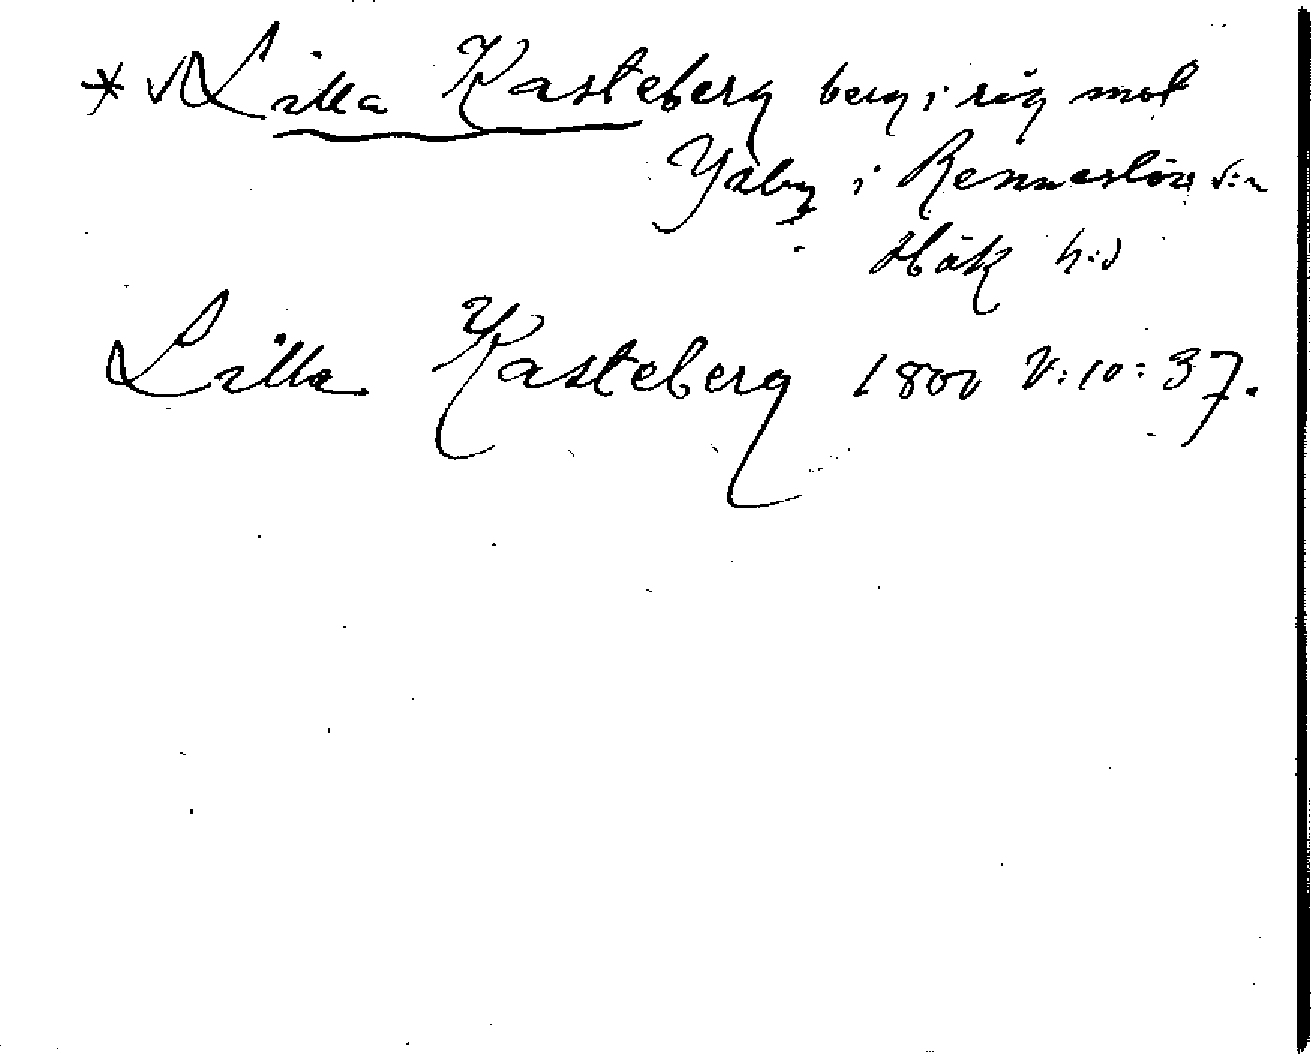 * √ Lilla Kasteberg berg i råg mot
Ysby i Renneslövs s:n
Hök h:d
Lilla Kasteberg 1800 V:10:37.